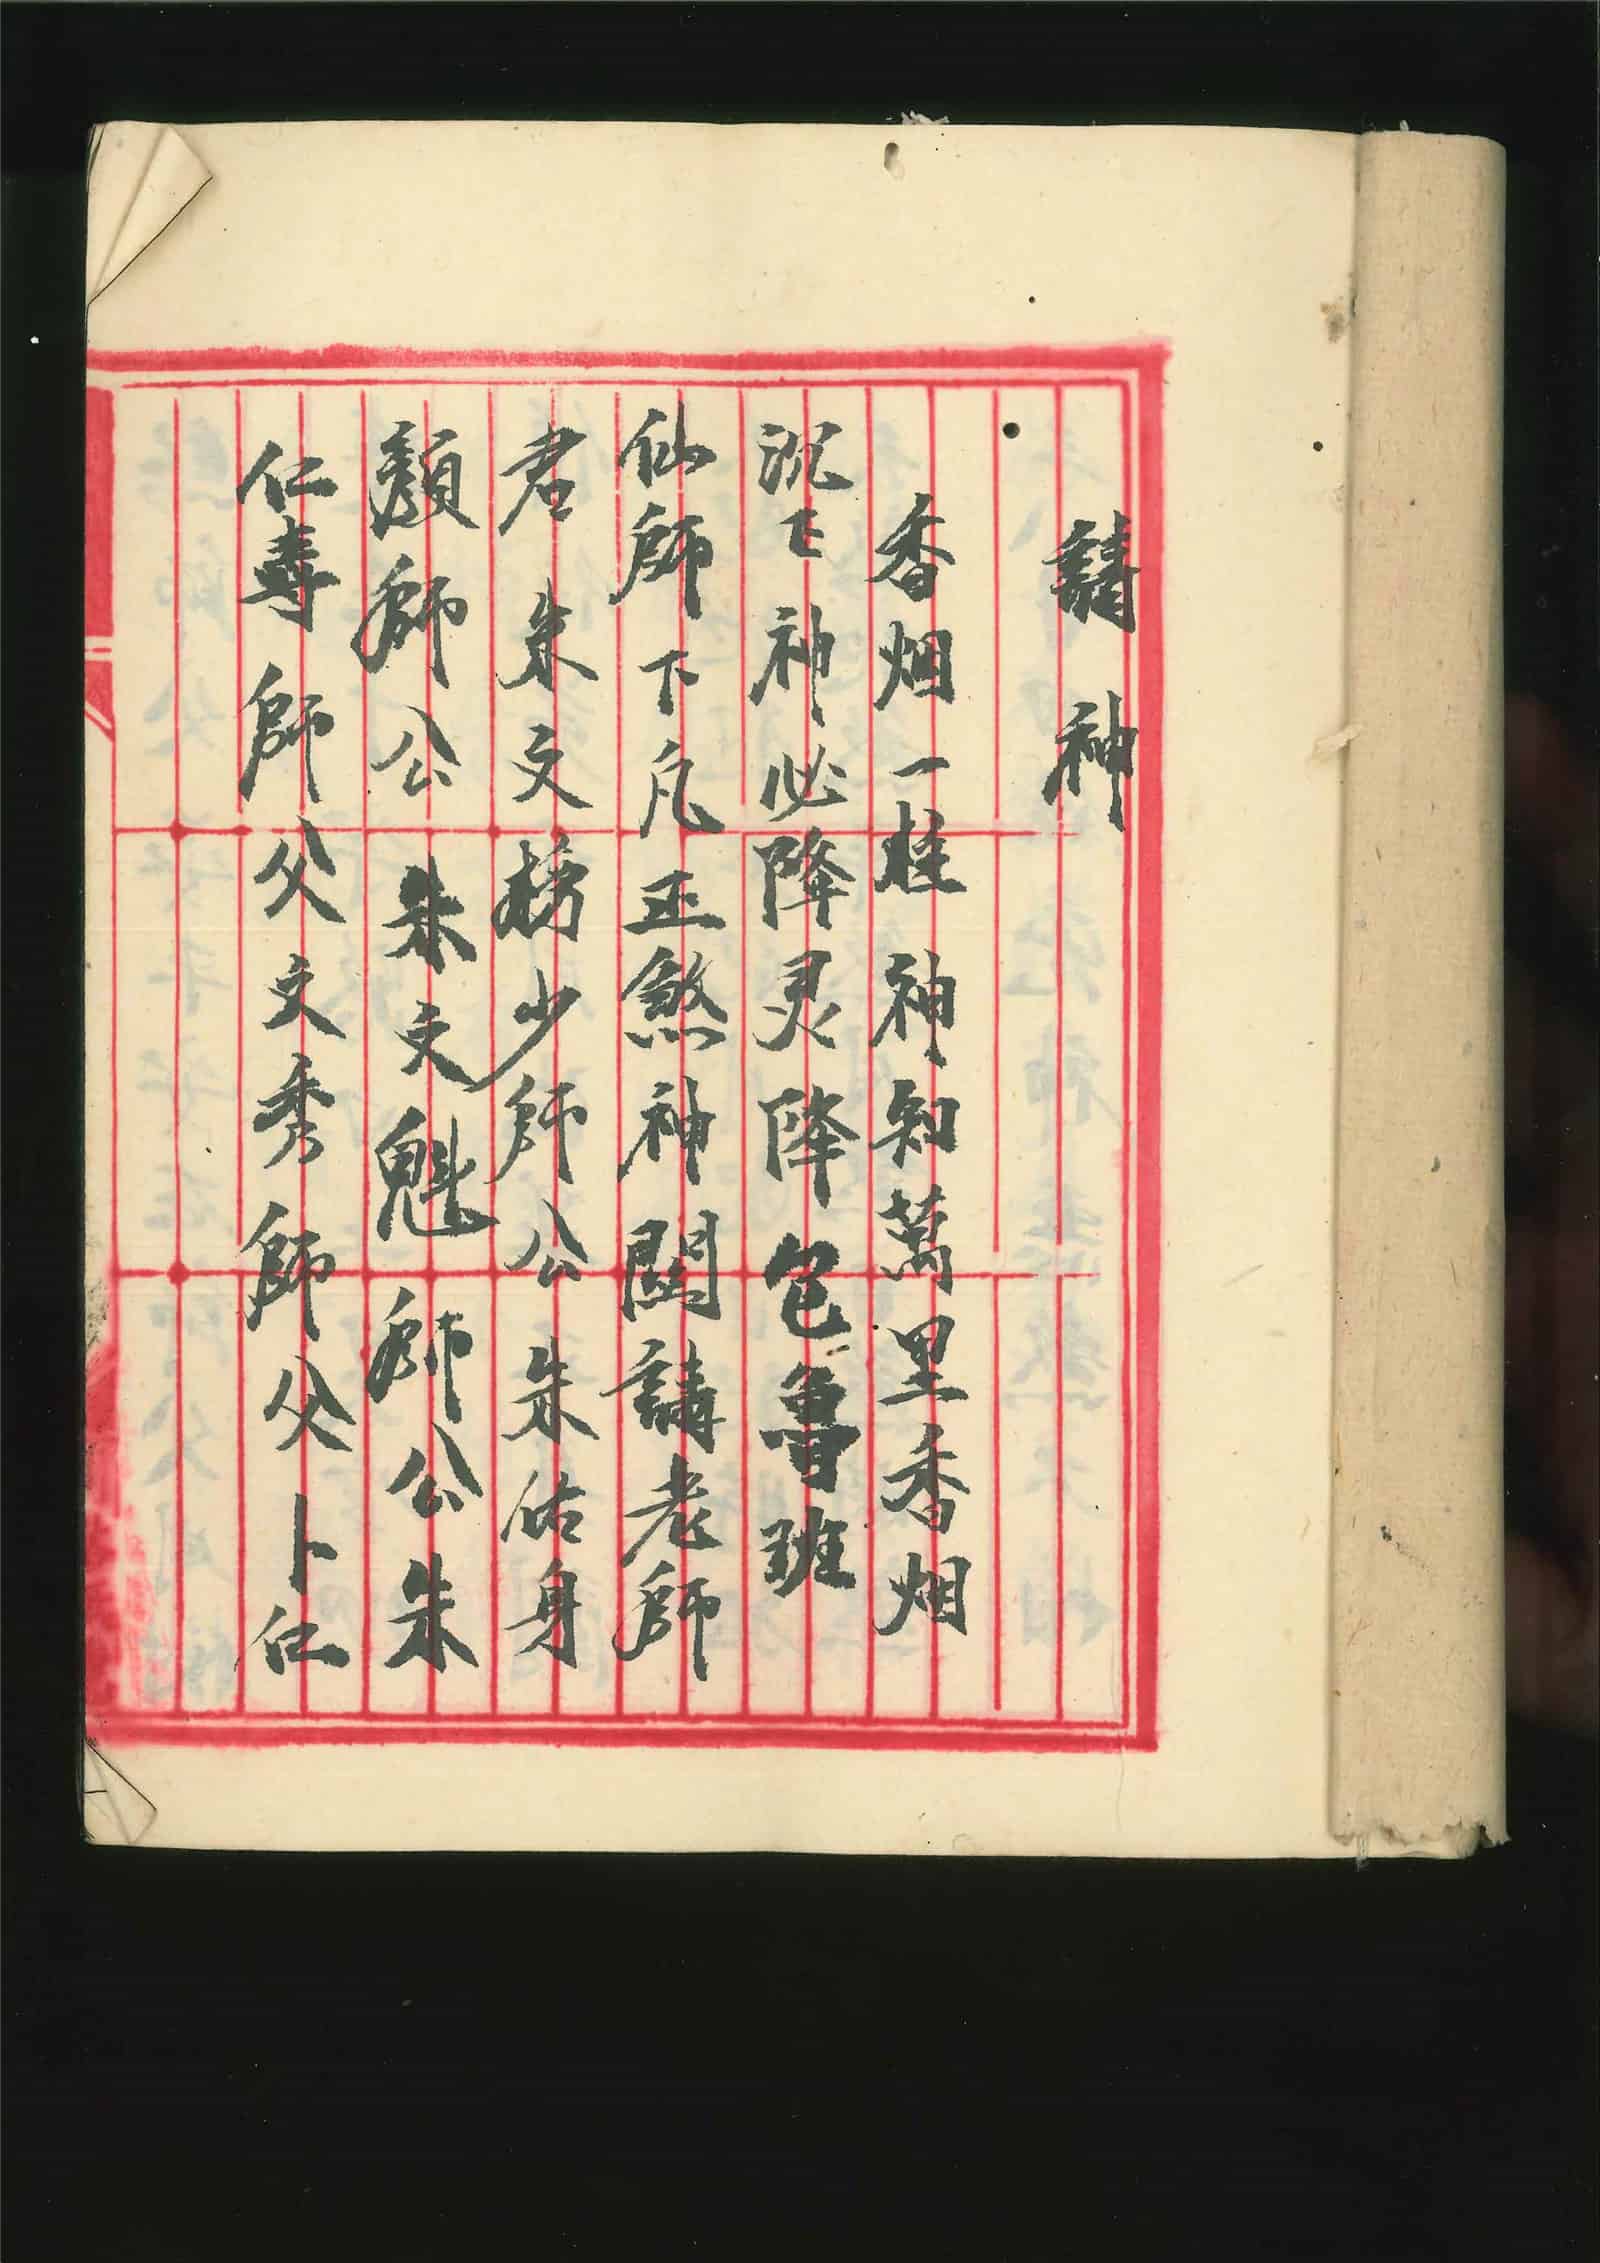 請神
香烟一柱神知萬里香烟
沉〻神必降灵降包魯班
仙師下凡正煞神関請老師
君朱文榜少師公朱佑身
顏師公朱文魁師公朱
仁壽師父文秀師父卜仁